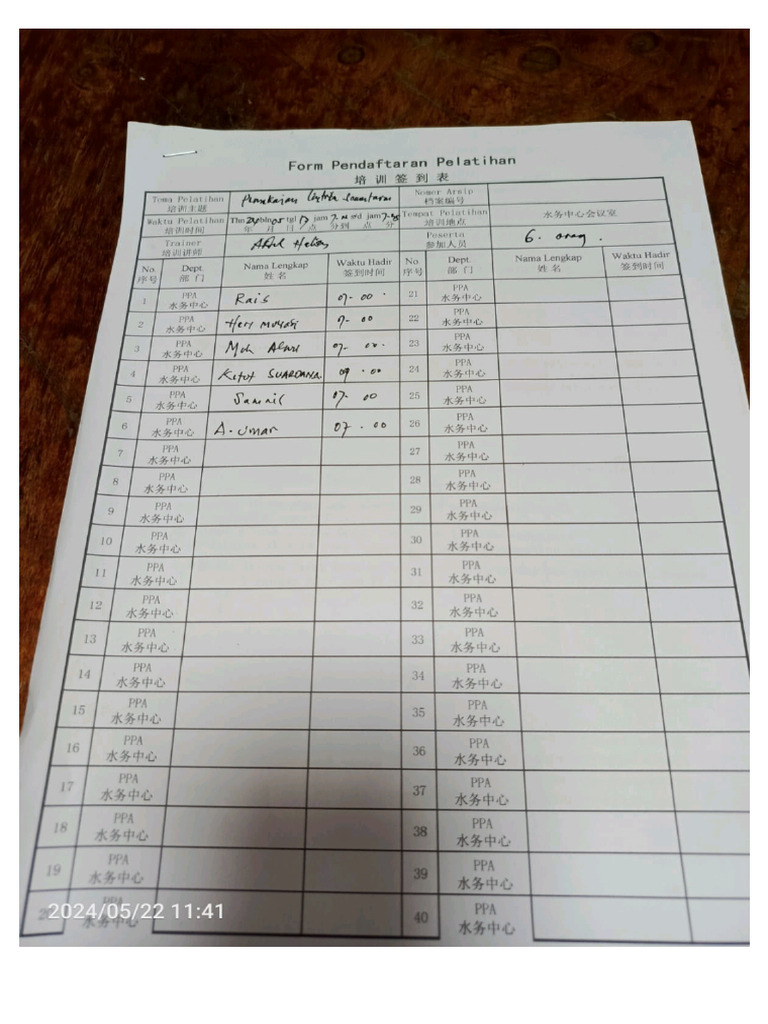 Form Pendaftaran Pelatihan
培 训 签 到 表
Tema Pelatihan
培训主题
Nomer Arsip
档案编号
Waktu Pelatihan
培训时间
Thn 24 bln 05 tgl jam 7. sd jam 7.
年 月 日 点 分到 点 分
Tempat Pelatihan
培训地点
水务中心会议室
Trainer
培训讲师
Peserta
参加人员
6. orang.
No. Dept. Nama Lengkap Waktu Hadir No. Dept. Nama Lengkap Waktu Hadir
序号 部 门 姓 名 签到时间 序号 部 门 姓 名 签到时间
1 PPA Rais 07-00 21 PPA
水务中心 水务中心
2 PPA Heri 7-00 22 PPA
水务中心 水务中心
3 PPA Moh 07-00 23 PPA
水务中心 水务中心
4 PPA Ketut SUARDANA 00 24 PPA
水务中心 水务中心
5 PPA 07-00 25 PPA
水务中心 水务中心
6 PPA A. Umar 07.00 26 PPA
水务中心 水务中心
7 PPA 27 PPA
水务中心 水务中心
8 PPA 28 PPA
水务中心 水务中心
9 PPA 29 PPA
水务中心 水务中心
10 PPA 30 PPA
水务中心 水务中心
11 PPA 31 PPA
水务中心 水务中心
12 PPA 32 PPA
水务中心 水务中心
13 PPA 33 PPA
水务中心 水务中心
14 PPA 34 PPA
水务中心 水务中心
15 PPA 35 PPA
水务中心 水务中心
16 PPA 36 PPA
水务中心 水务中心
17 PPA 37 PPA
水务中心 水务中心
18 PPA 38 PPA
水务中心 水务中心
19 PPA 39 PPA
水务中心 水务中心
PPA 40 PPA
水务中心 水务中心
2024/05/22 11:41